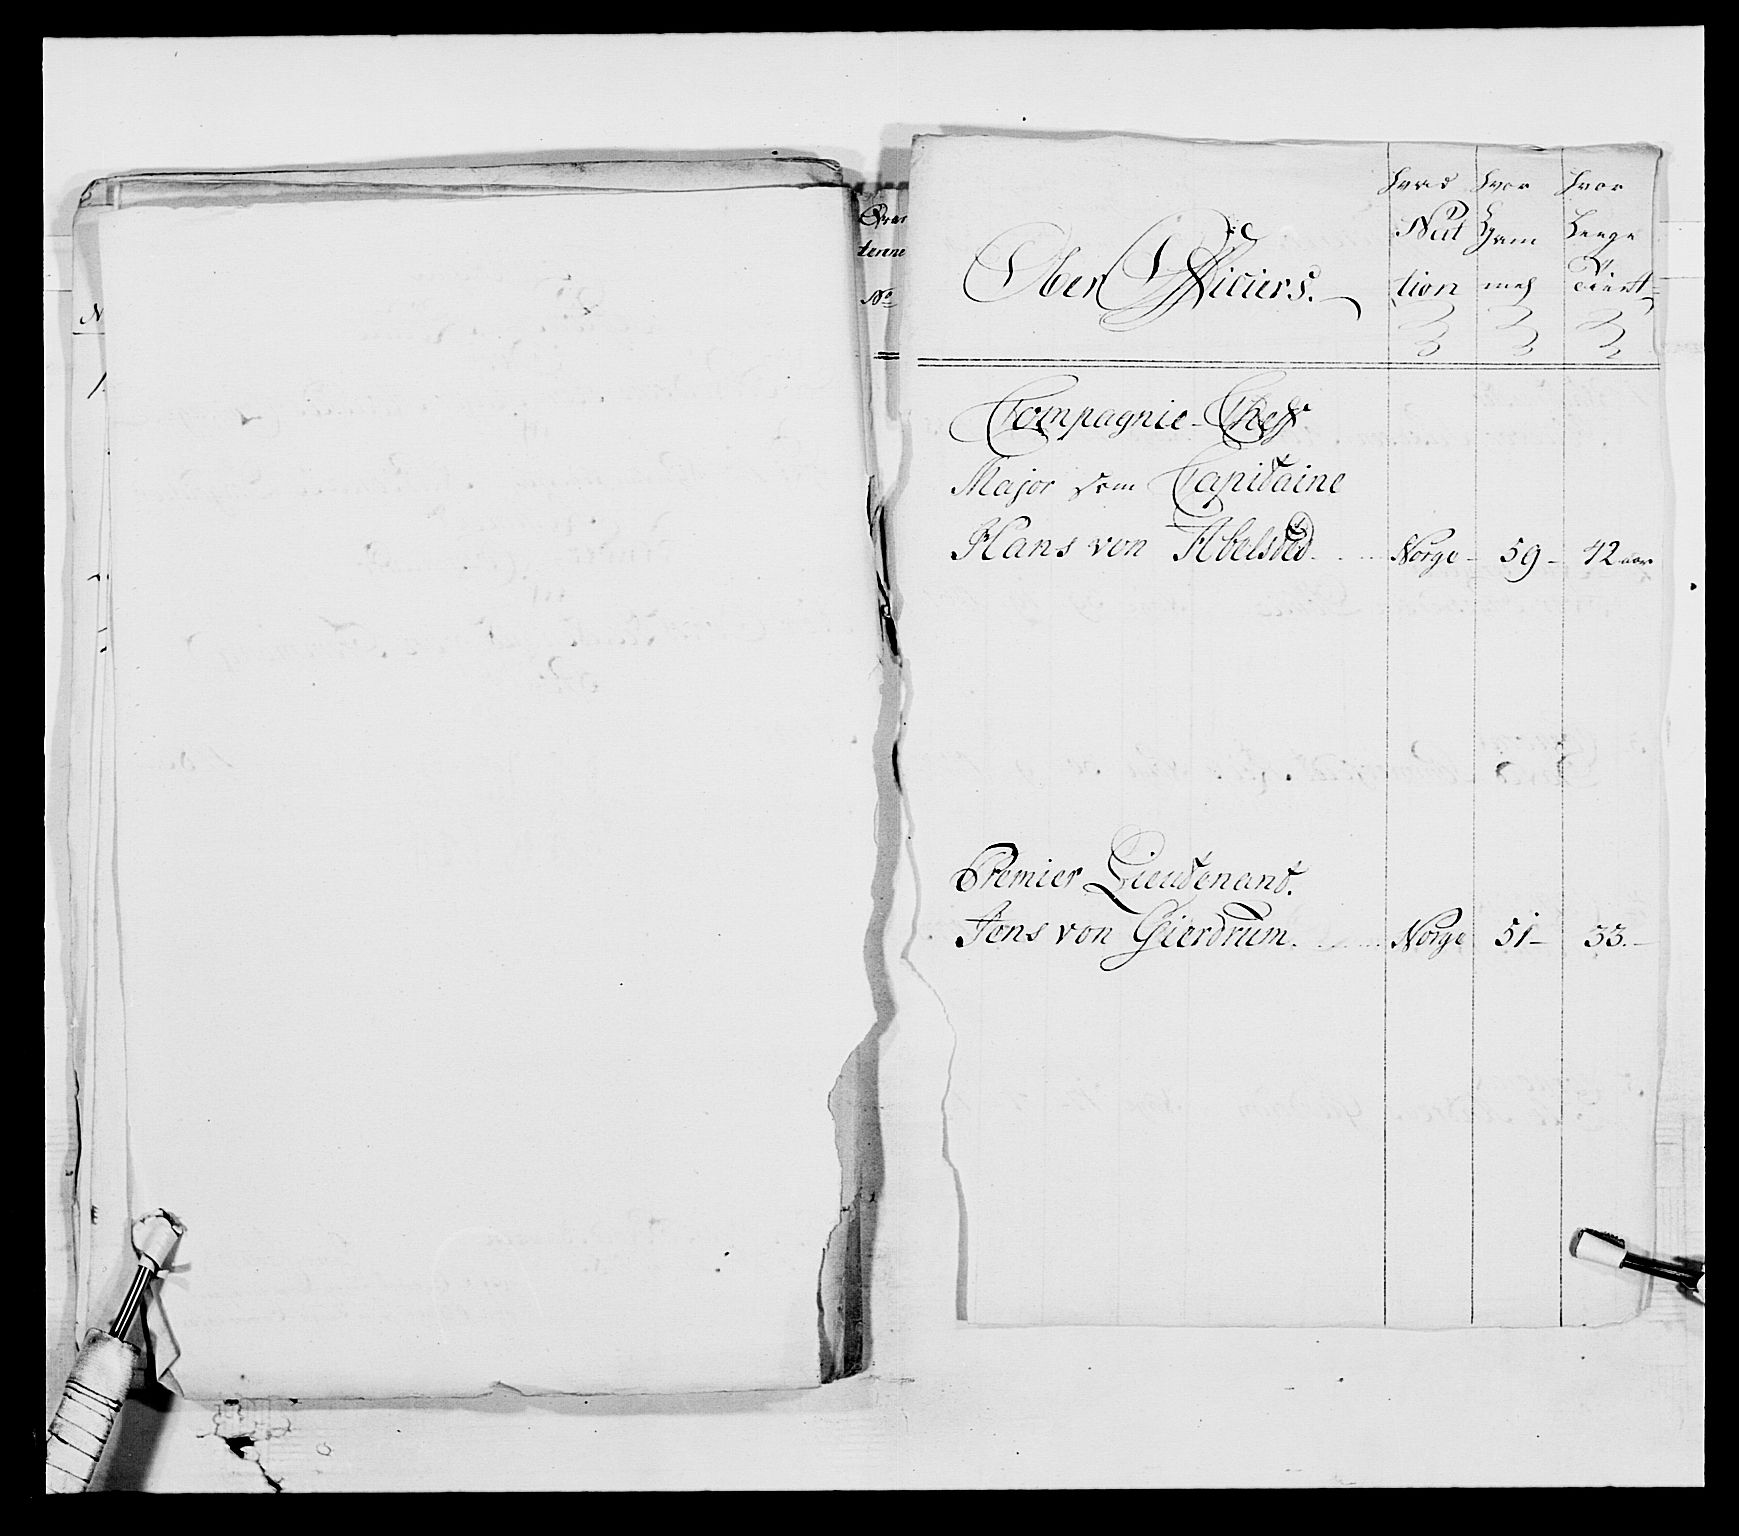 Ober Officiers.
hvad Nation
hvor Gammel
hvor Længe Tient
Compagnie-Chef
Major som Capitaine
Hans von Abelsted. Norge - 59 - 42 aar
Premier Lieutenant.
Jens von Gierdrum. Norge 51 - 33. -
No